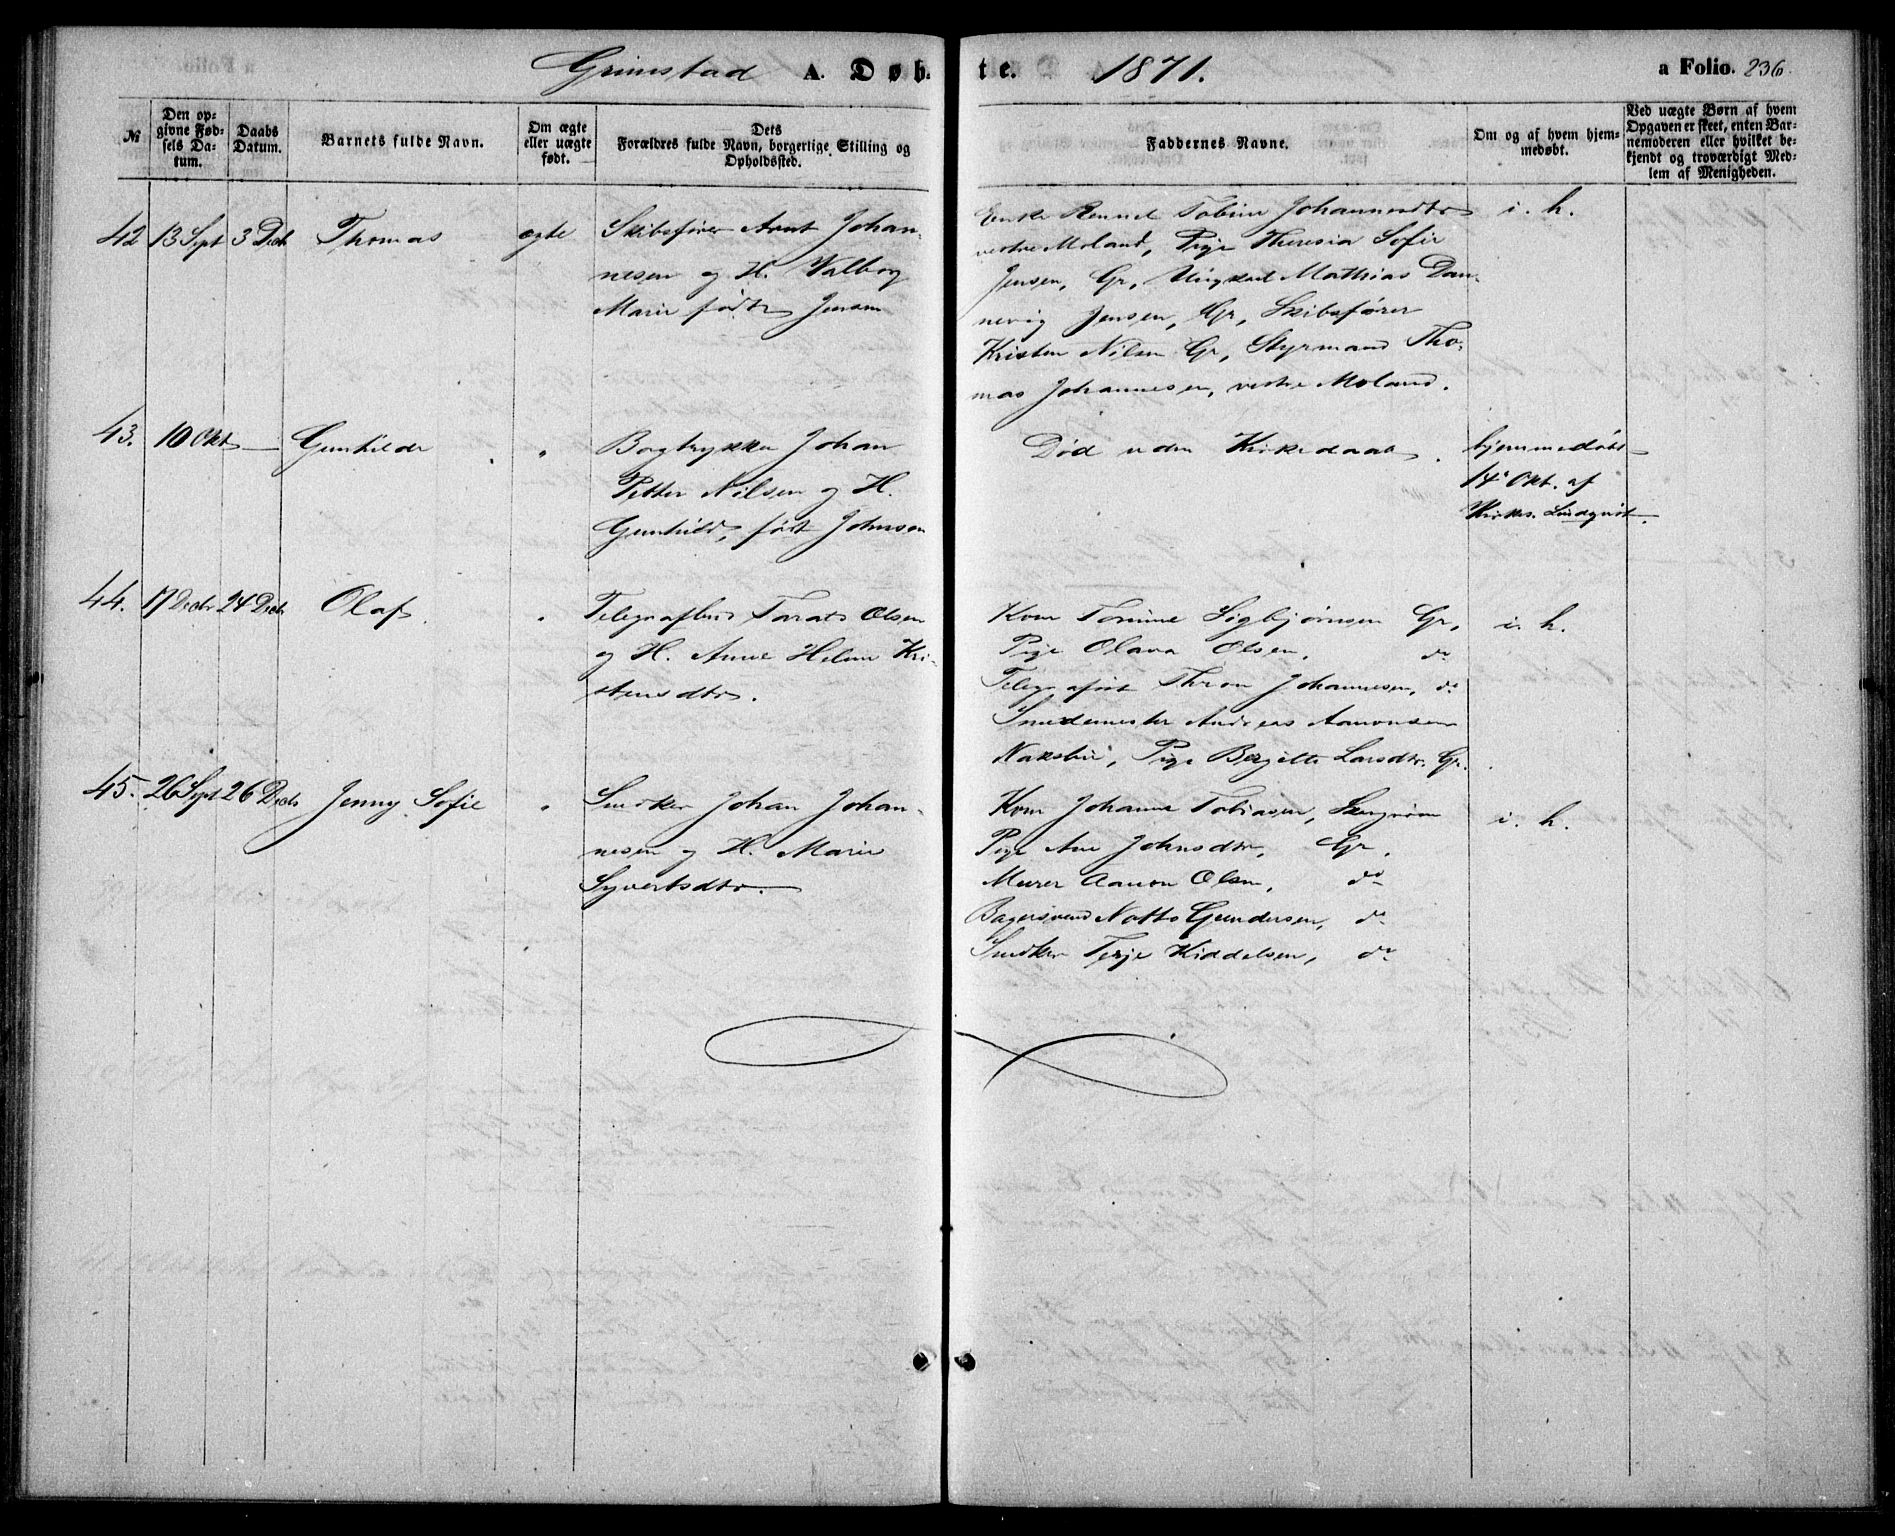 Grimstad A. Døb- te. 1871. a Folio. 236.
№
Den op-
givne Fød-
sels Da-
tum.
Daabs
Datum.
Barnets fulde Navn.
Om ægte
eller uægte
født.
Dets
Forældres fulde Navn, borgerlige Stilling og
Opholdssted.
Faddernes Navne.
Om og af hvem hjem-
medøbt.
Ved uægte Børn af hvem
Opgaven er skeet, enten Bar-
nemoderen eller hvilket be-
kjendt og troværdigt Med-
lem af Menigheden.
42 13 Sept 3 Decb Thomas ægte
Skibsfører Arnt Johan-
nesen og H. Valborg
Marie født Jensen
Enke Tobine Johannesdtr
vestre Moland, Pige Theresia Sofie
Jensen, Gr, Ungkarl Mathias Dan-
nevig Jensen, Gr, Skibsfører
Kristen Nilsen Gr, Styrmand Tho-
mas Johannesen, vestre Moland.
i. h.
43. 10 Okt — Gunhilde "
Bogtrykker Johan
Petter Nilsen og H.
Gunhild, født Johnsen
Død uden Kirkedaab.
hjemmedøbt
14 Okt. af
Kirkes. Lindqvist.
44. 17 Decbr 24 Decb Olaf "
Telegrafbud Tarald Olsen
og H. Anne Helene Kri-
stensdtr.
Kone Tomine Sigbjørnsen Gr,
Pige Olava Olsen, do
Telegrafist Thron Johannesen, do
Smedemester Andreas Aamonsen
Naksbie, Pige Bergitte Larsdtr. Gr.
i. h.
45. 26 Sept 26 Decb Jenny Sofie "
Snedker Johan Johan-
nesen og H. Marie
Syvertsdtr.
Kone Johanne Tobiasen,
Pige Ane Johnsdtr, Gr,
Murer Aanon Olsen, do
Bagersvend Notto Gundersen, do
Snedker Terje Kiddelsen, do
i. h.